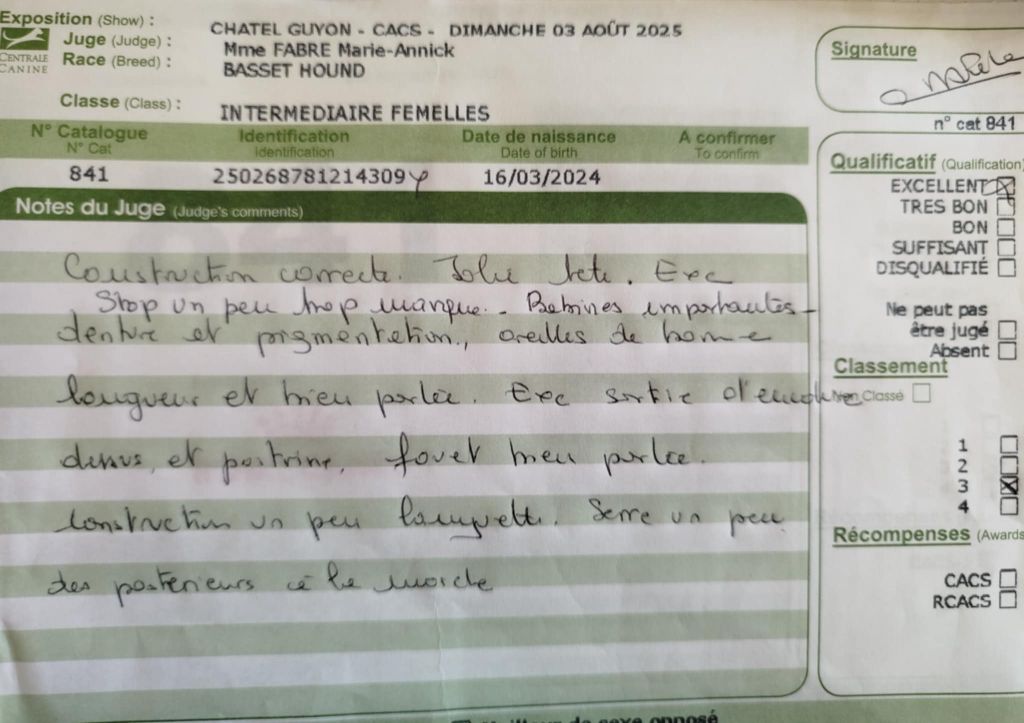 Exposition (Show) : CHATEL GUYON - CACS - DIMANCHE 03 AOÛT 2025
CENTRALE CANINE
Juge (Judge) : Mme FABRE Marie-Annick
Race (Breed) : BASSET HOUND
Classe (Class) : INTERMEDIAIRE FEMELLES
N° Catalogue Identification Date de naissance A confirmer
N° Cat Identification Date of birth To confirm
841 250268781214309 16/03/2024
Notes du Juge (Judge's comments)
Construction correcte. Jolie tete. Exc
Stop un peu trop marque. Babines importantes
denture et pigmentation, oreilles de bonne
longueur et bien portée. Exc sortie d'encolure
dessus, et poitrine, fouet bien portée.
construction un peu longuette. Serre un peu
des posterieurs à la marche
Signature
n° cat 841
Qualificatif (Qualification)
EXCELLENT
TRES BON
BON
SUFFISANT
DISQUALIFIÉ
Ne peut pas
être jugé
Absent
Classement
Non Classé
1
2
3
4
Récompenses (Awards
CACS
RCACS
de sexe opposé